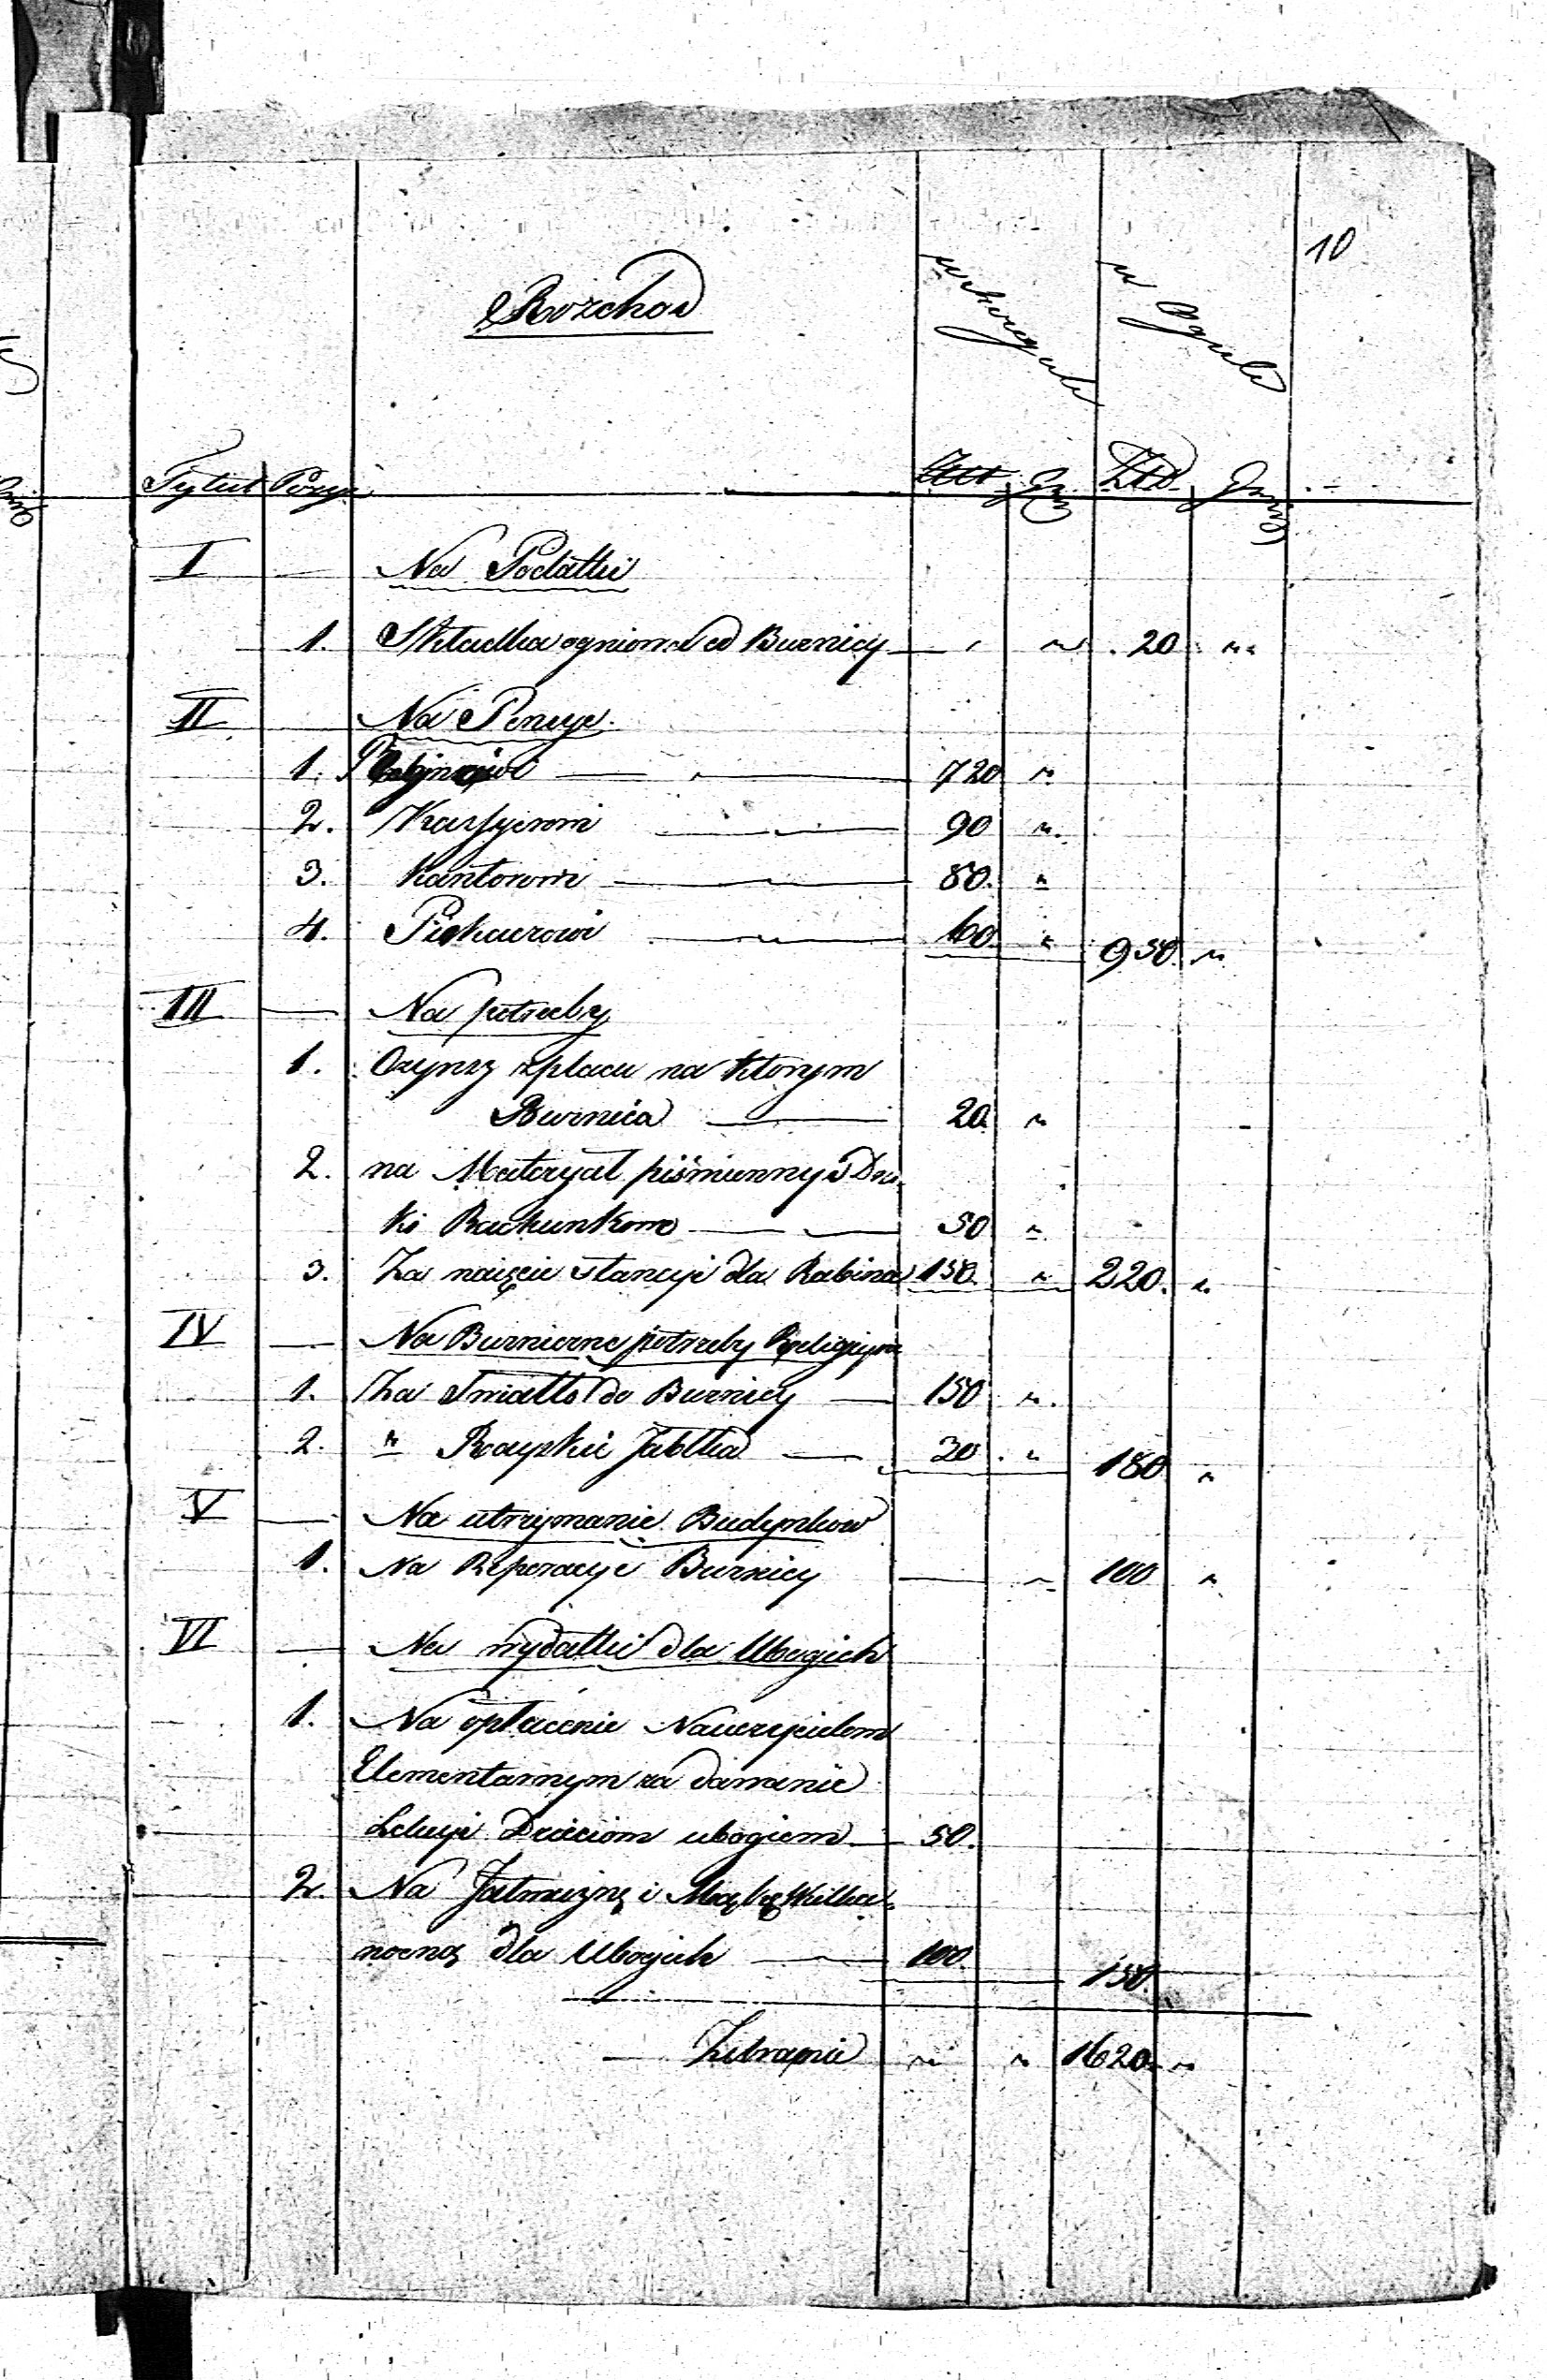 10
Rozchod
w szczegule
w Ogule
Tytuł Pozy: Złt gr Złt Groszy
I — Na Podatki
1. Składka ogniowa od Buznicy — " " 20 "
II Na Pensye
1. Rabinowi — " — 720 "
2. Kassyerowi — " — 90 "
3. Kantorowi — " — 80 "
4. Piskarzowi — " — 60 " 950 "
III — Na potrzeby
1. Czynsz z placu na ktorym
Buznica — 20 "
2. na Materyał piśmienny i Dru
ki Rachunkowe — " — 50 "
3. Za naięcie stancyi dla Rabina 150 " 220 "
IV — Na Buzniczne potrzeby Religiyne
1. Za Swiatło do Buznicy — 150 "
2. " Rayskie Jabłka — 30 " 180 "
V — Na utrzymanie Budynkow
1. Na Reperacye Buznicy — " 100 "
VI — Na wydatki dla Ubogich
1. Na opłacenie Nauczycielom
Elementarnym za dawanie
Lekcyi Dzieciom ubogiem — 50.
2. Na Jałmużnę i Mąkę Wielka-
nocną dla Ubogich — 100. 150.
— Zebranie " " 1620 "